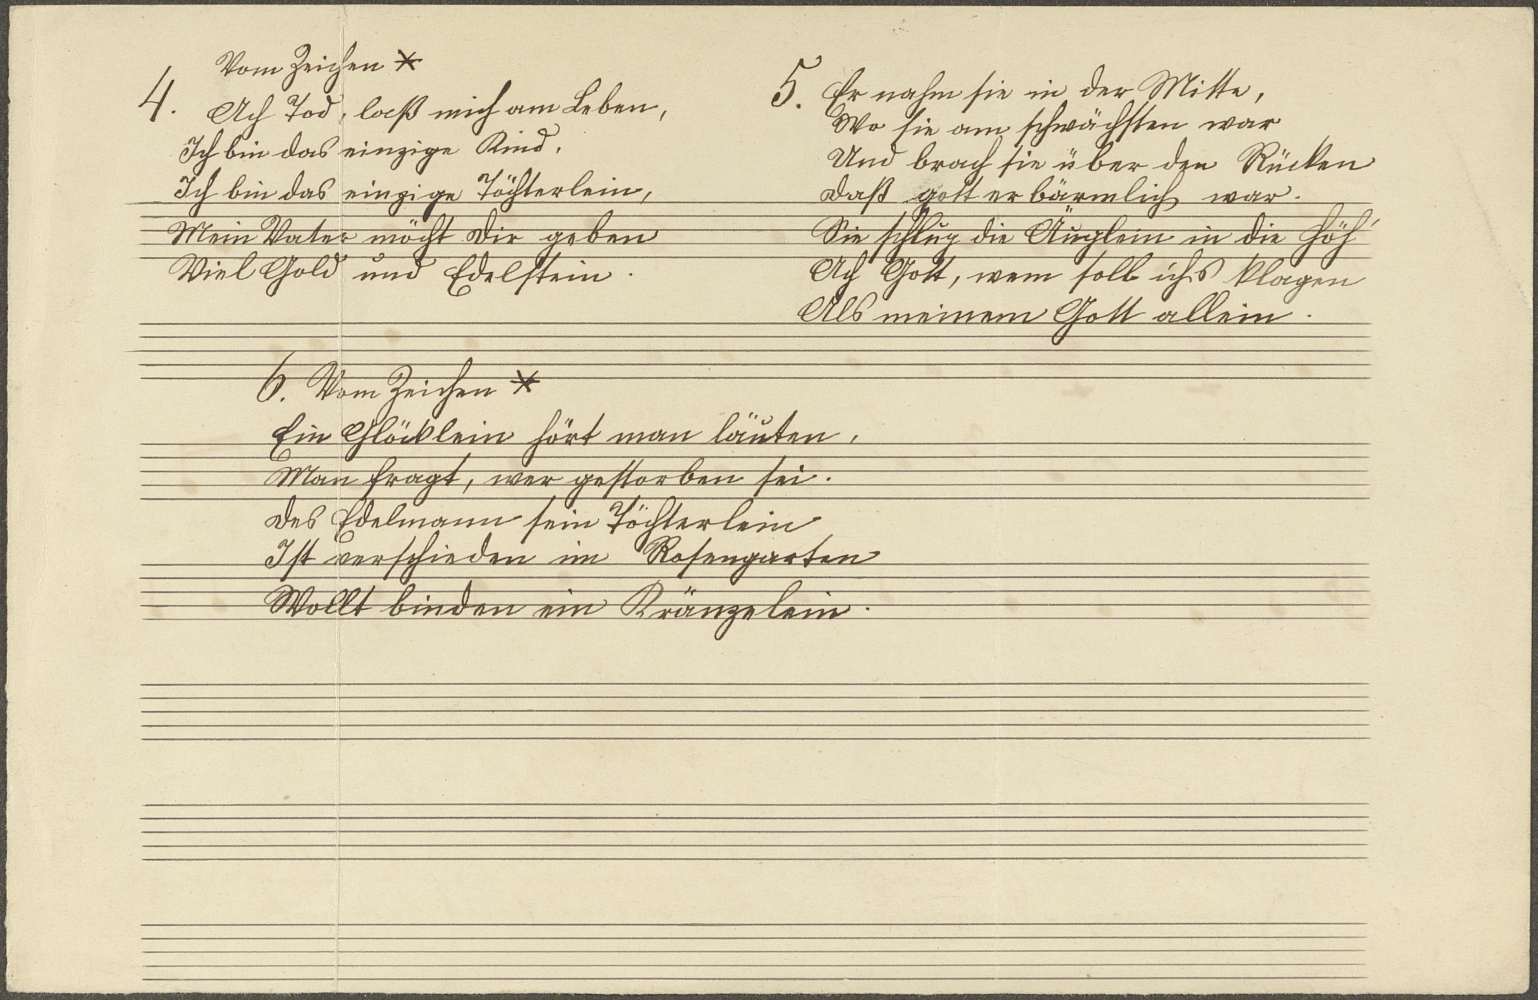 Vom Zeichen *
4. Ach Tod, laß mich am Leben,
Ich bin das einzige Kind.
Ich bin das einzige Töchterlein,
Mein Vater möcht Dir geben
Viel Gold und Edelstein.
5. Er nahm sie in der Mitte,
Wo sie am schwächsten war
Und brach sie über den Rücken
Daß gott erbärmlich war.
Sie schlug die Äuglein in die Höh'
Ach Gott, wem soll ichs klagen
Als meinem Gott allein.
6. Vom Zeichen *
Ein Glöcklein hört man läuten,
Man fragt, wer gestorben sei.
Des Edelmann sein Töchterlein
Ist verschieden im Rosengarten
Wollt binden ein Kränzelein.